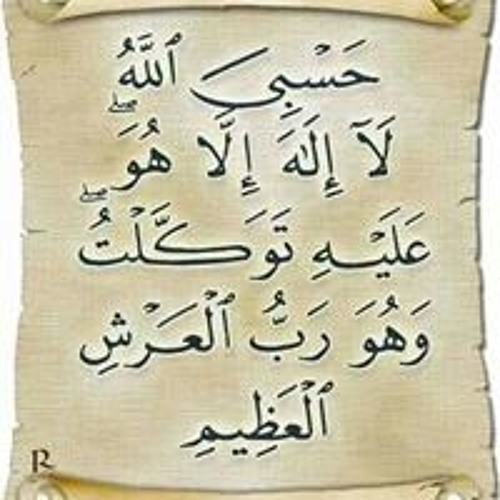 حَسْبِىَ ٱللَّهُ
لَآ إِلَٰهَ إِلَّا هُوَ ۖ
عَلَيْهِ تَوَكَّلْتُ ۖ
وَهُوَ رَبُّ ٱلْعَرْشِ
ٱلْعَظِيمِ
R